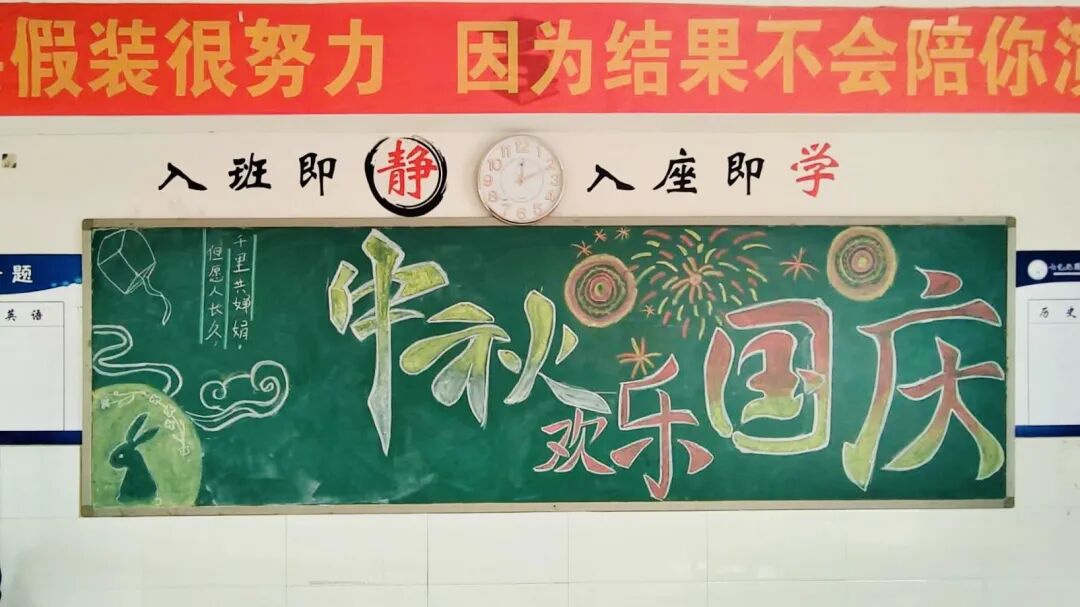 假装很努力 因为结果不会陪你演
入班即静 入座即学
但愿人长久，
千里共婵娟。
中秋
欢乐
国庆
题
英语
历史